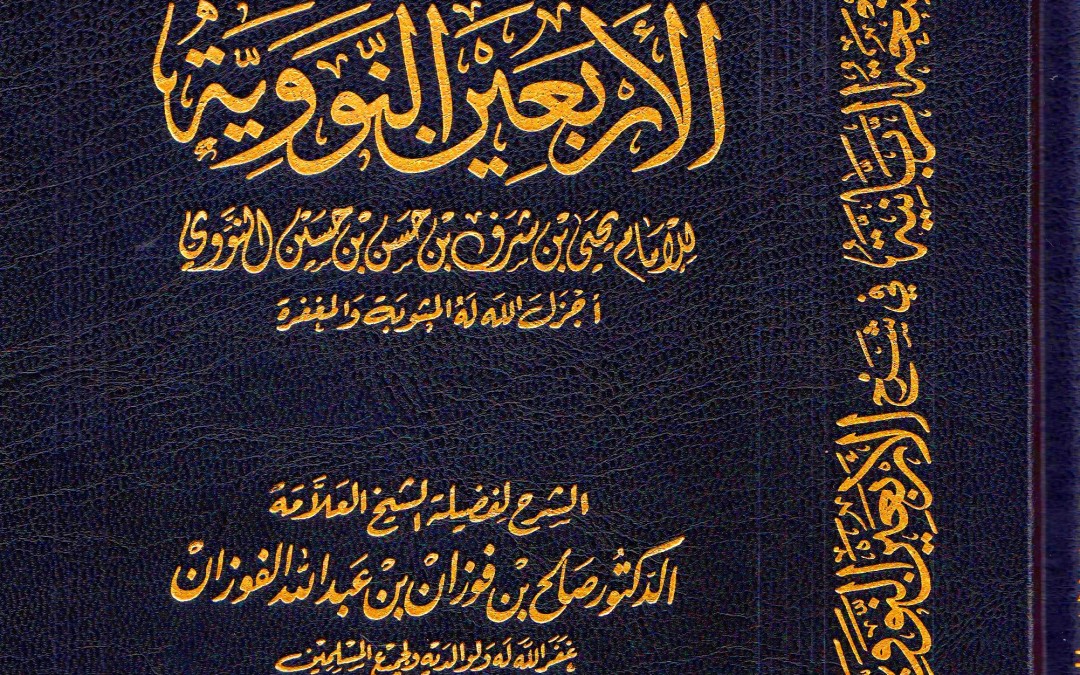 الأَرْبَعِيْنَ النَّوَوِيَّةِ
لِلْإِمَامِ يَحْيَى بْنِ شَرَفِ بْنِ حَسَن بْنِ حُسَيْن النَّوَوِي
أَجْزَلَ اللهُ لَهُ المَثُوبَةَ وَالمَغْفِرَة
الشرح لفضيلة الشيخ العَلَّامَة
الدّكتُور صَالح بن فوزان بن عَبد الله الفوزان
غَفَرَ اللَّهُ لَه وَلِوَالدَيه وَلِجَميع المُسْلِمِيْن
الرَّبَّانِيَّة في شَرْح الأَرْبَعِيْن النَّوَوِيَّة